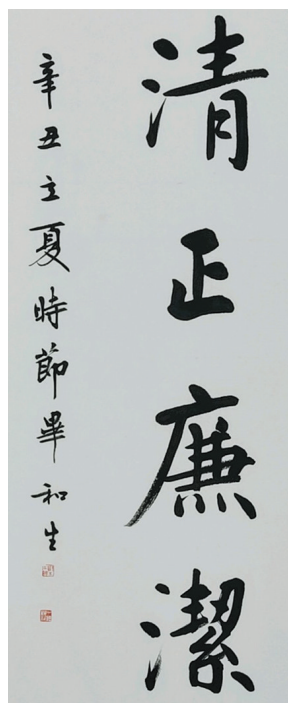 清正廉潔
辛丑立夏時節畢和生